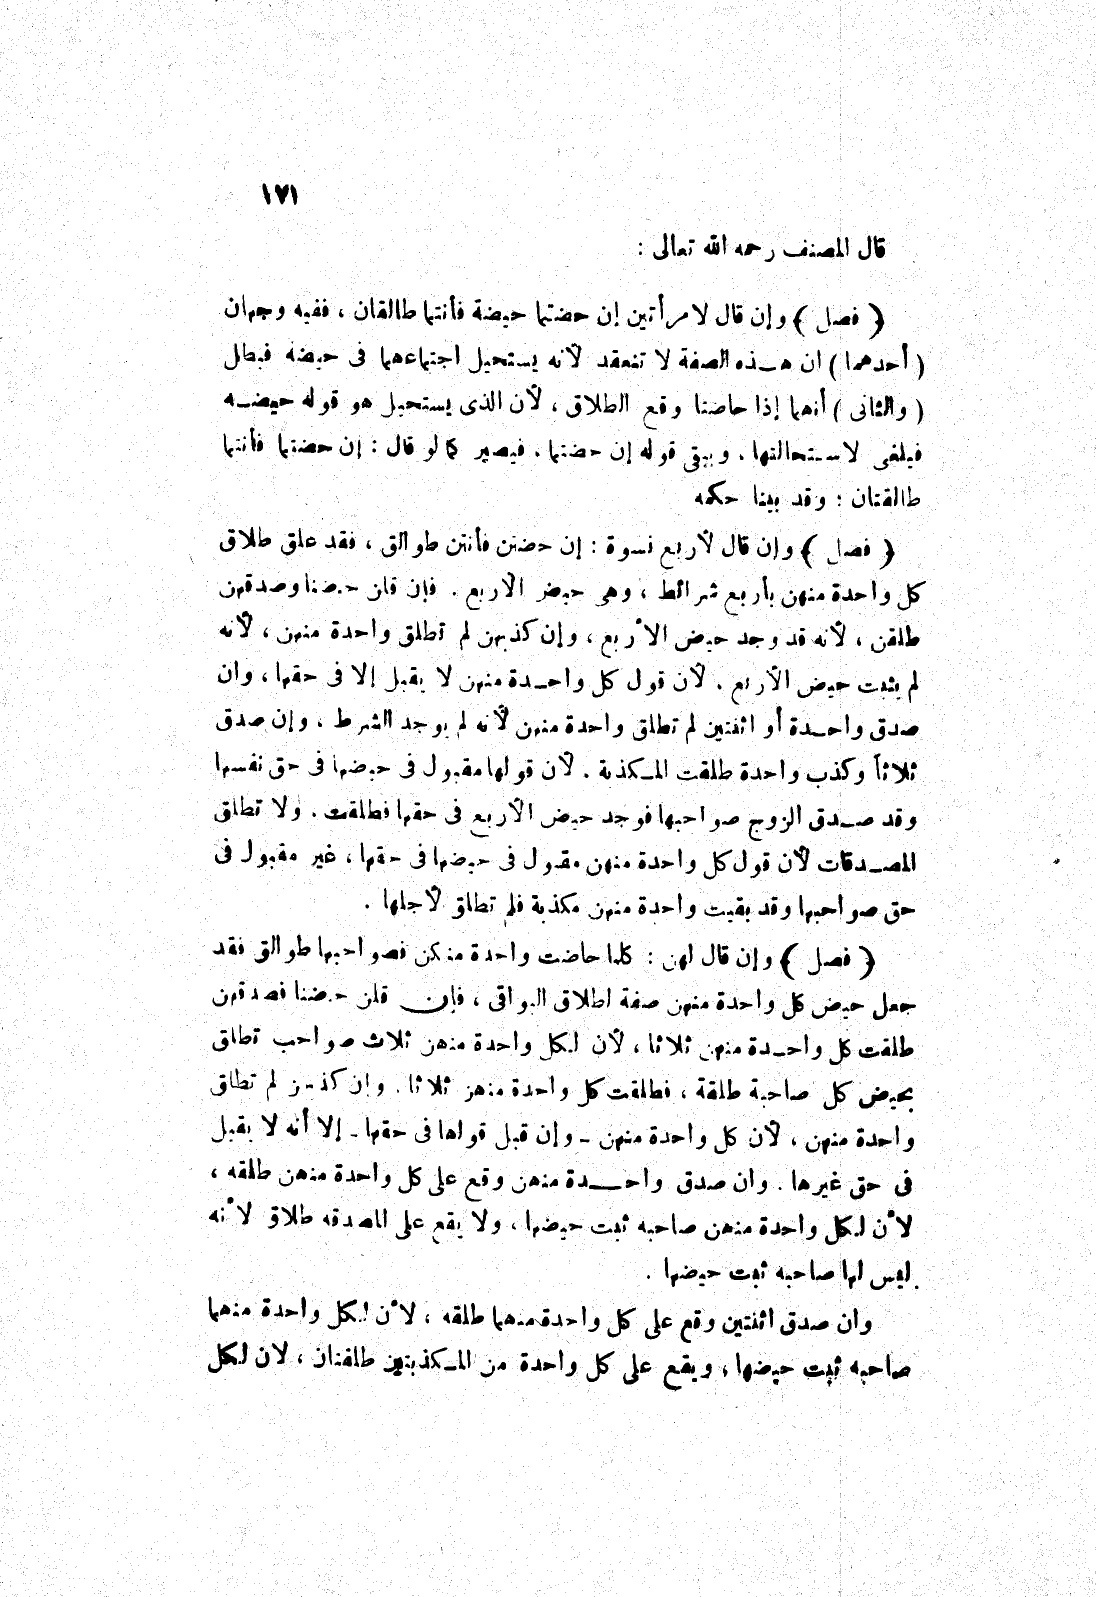 ١٧١
قال المصنف رحمه الله تعالى :
﴿ فصل ﴾ وإن قال لامرأتين إن حضتما حيضة فأنتما طالقان ، ففيه وجهان
( أحدهما ) ان هــذه الصفة لا تنعقد لأنه يستحيل اجتماعهما فى حيضة فبطل
( والثانى ) أنهما إذا حاضتا وقع الطلاق ، لأن الذى يستحيل هو قوله حيضــه
فيلغى لاستحالتها . ويبقى قوله إن حضتما ، فيصير كما لو قال : إن حضتما فأنتما
طالقتان : وقد بينا حكمه
﴿ فصل ﴾ وإن قال لأربع نسوة : إن حضتن فأنتن طوالق ، فقد علق طلاق
كل واحدة منهن بأربع شرائط ، وهى حيض الأربع . فإن قلن حضنا وصدقهن
طلقن ، لأنه قد وجد حيض الأربع ، وإن كذبهن لم تطلق واحدة منهن ، لأنه
لم يثبت حيض الأربع . لأن قول كل واحــدة منهن لا يقبل إلا فى حقها ، وان
صدق واحــدة أو اثنتين لم تطلق واحدة منهن لأنه لم يوجد الشرط ، وإن صدق
ثلاثاً وكذب واحدة طلقت المــكذبة . لأن قولها مقبول فى حيضها فى حق نفسها
وقد صــدق الزوج صواحبها فوجد حيض الأربع فى حقها فطلقت . ولا تطلق
المصــدقات لأن قول كل واحدة منهن مقبول فى حيضها فى حقها ، غير مقبول فى
حق صواحبها وقد بقيت واحدة منهن مكذبة فلم تطلق لأجلها .
﴿ فصل ﴾ وإن قال لهن : كلما حاضت واحدة منكن فصواحبها طوالق فقد
جعل حيض كل واحدة منهن صفة لطلاق البواقى ، فإن قلن حضنا فصدقهن
طلقت كل واحــدة منهن ثلاثا ، لأن لكل واحدة منهن ثلاث صواحب تطلق
بحيض كل صاحبة طلقة ، فطلقت كل واحدة منهن ثلاثا . وإن كذبهن لم تطلق
واحدة منهن ، لأن كل واحدة منهن - وإن قبل قولها فى حقها - إلا أنه لا يقبل
فى حق غيرها . وان صدق واحــــدة منهن وقع على كل واحدة منهن طلقه ،
لأن لكل واحدة منهن صاحبه ثبت حيضها ، ولا يقع على المصدقه طلاق لأنه
ليس لها صاحبه ثبت حيضها .
وان صدق اثنتين وقع على كل واحدة منهما طلقه ، لأن لكل واحدة منهما
صاحبه ثبت حيضها ، ويقع على كل واحدة من المــكذبتين طلقتان ، لان لكل